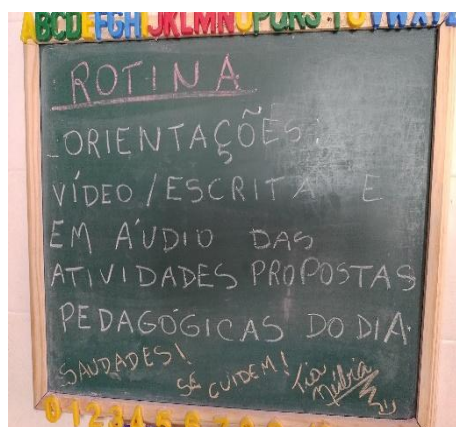 ABCDEFGHIJKLMNOPQRSTUVWXYZ
ROTINA
- ORIENTAÇÕES:
VÍDEO/ESCRITA E
EM ÁUDIO DAS
ATIVIDADES PROPOSTAS
PEDAGÓGICAS DO DIA.
SAUDADES!
SE CUIDEM!
Tia
Núbia
0123456789